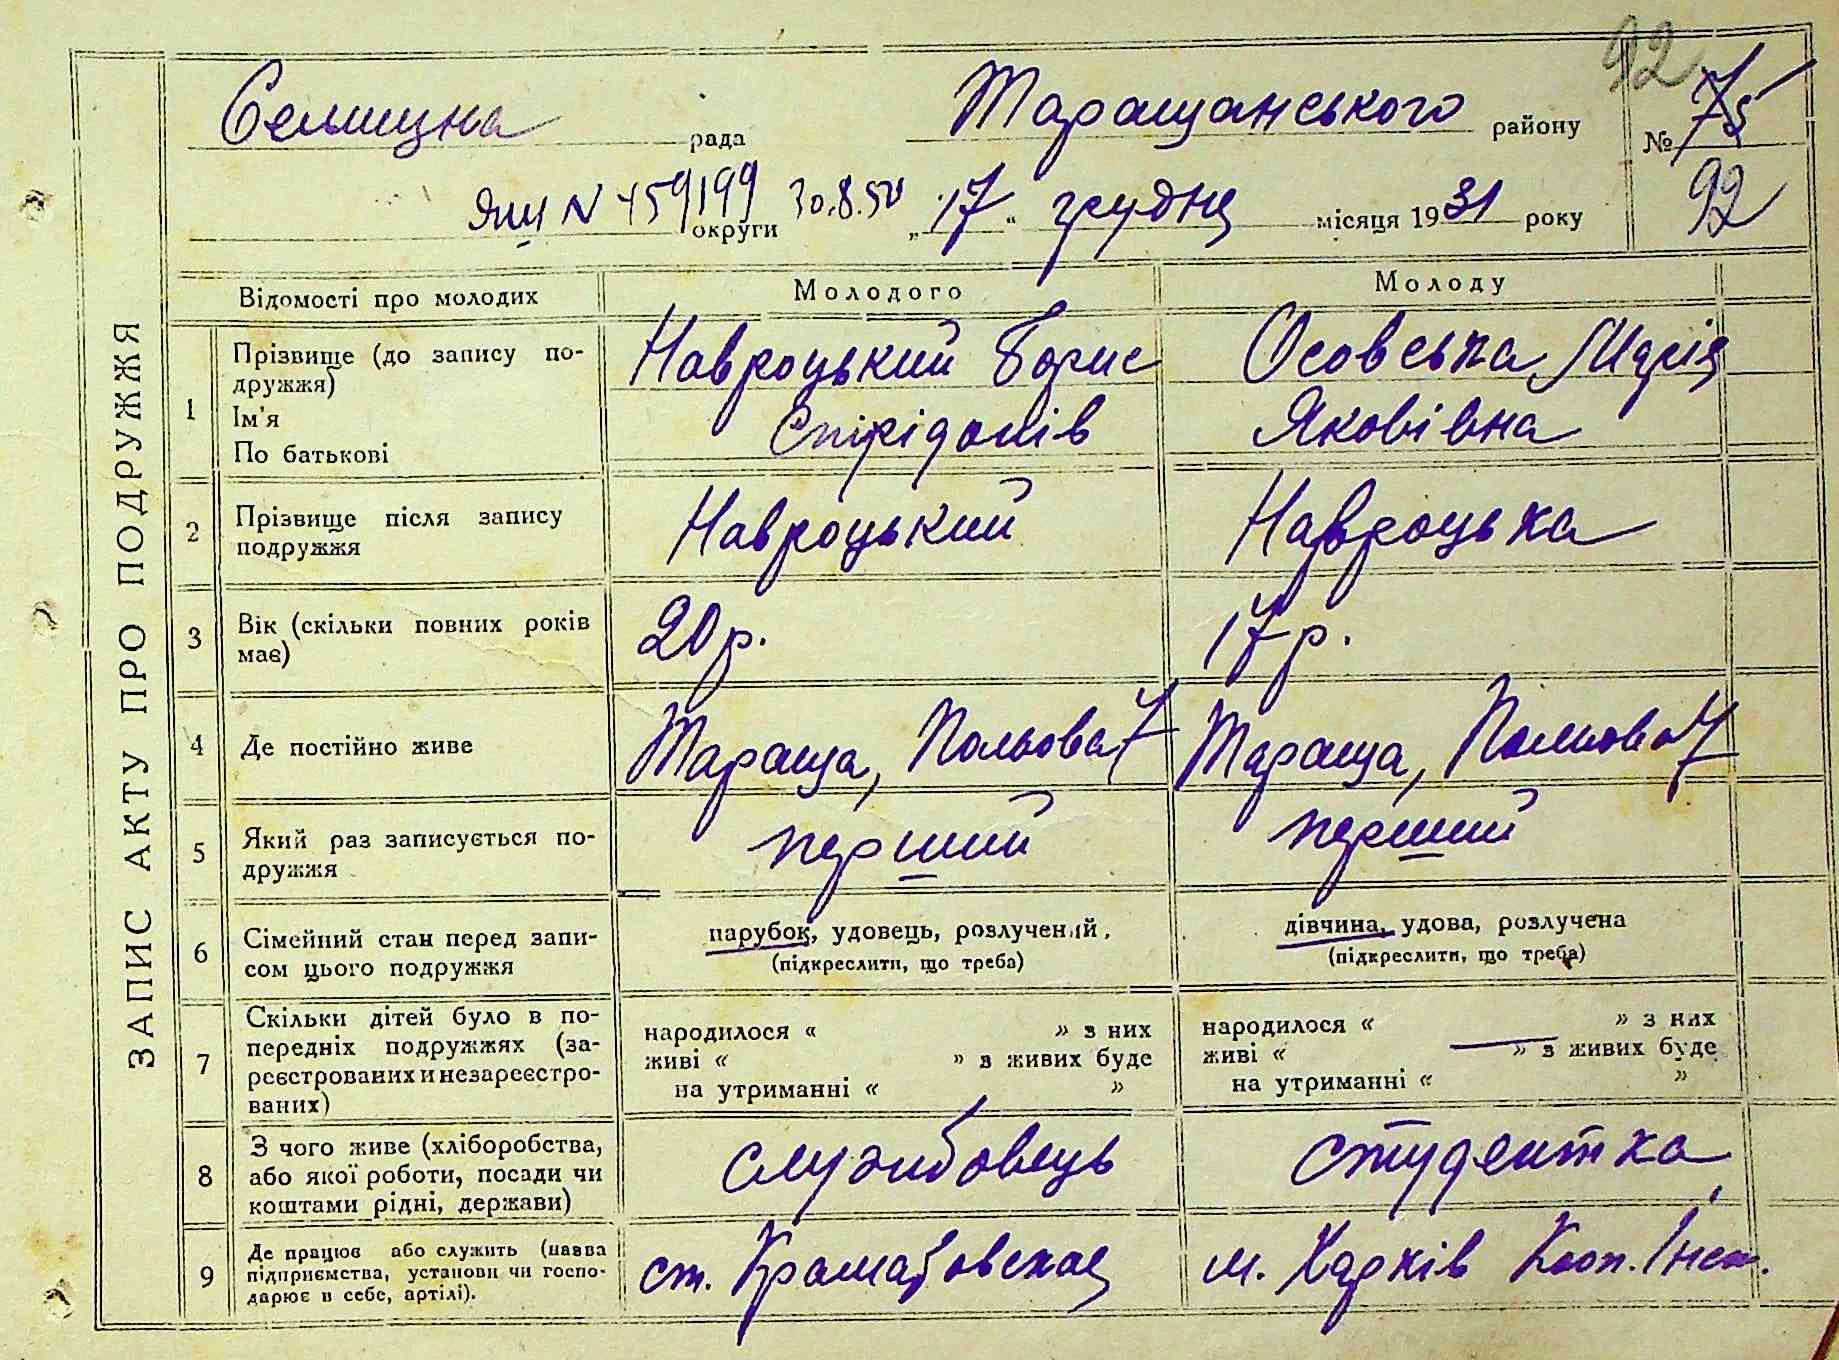 92
Селищна рада Таращанського району № 75
ЯШ № 459199 30.8.50 округи „17“ грудня місяця 1931 року 92
ЗАПИС АКТУ ПРО ПОДРУЖЖЯ
Відомості про молодих Молодого Молоду
1 Прізвище (до запису по-
дружжя)
Ім'я
По батькові
Навроцький Борис
Спірідонів
Осовська Марія
Яковівна
2 Прізвище після запису
подружжя
Навроцький
Навроцька
3 Вік (скільки повних років
має)
20 р.
17 р.
4 Де постійно живе
Тараща, Польова 7
Тараща, Польова 7
5 Який раз записується по-
дружжя
перший
перший
6 Сімейний стан перед запи-
сом цього подружжя
парубок, удовець, розлучений.
(підкреслити, що треба)
дівчина, удова, розлучена
(підкреслити, що треба)
7 Скільки дітей було в по-
передніх подружжях (за-
реєстрованих и незареєстро-
ваних)
народилося « » з них
живі « » з живих буде
на утриманні « »
народилося « » з них
живі « » з живих буде
на утриманні « »
8 З чого живе (хліборобства,
або якої роботи, посади чи
коштами рідні, держави)
службовець
студентка
9 Де працює або служить (назва
підприємства, установи чи госпо-
дарює в себе, артілі).
ст.
м. Харків Кооп. Інст.